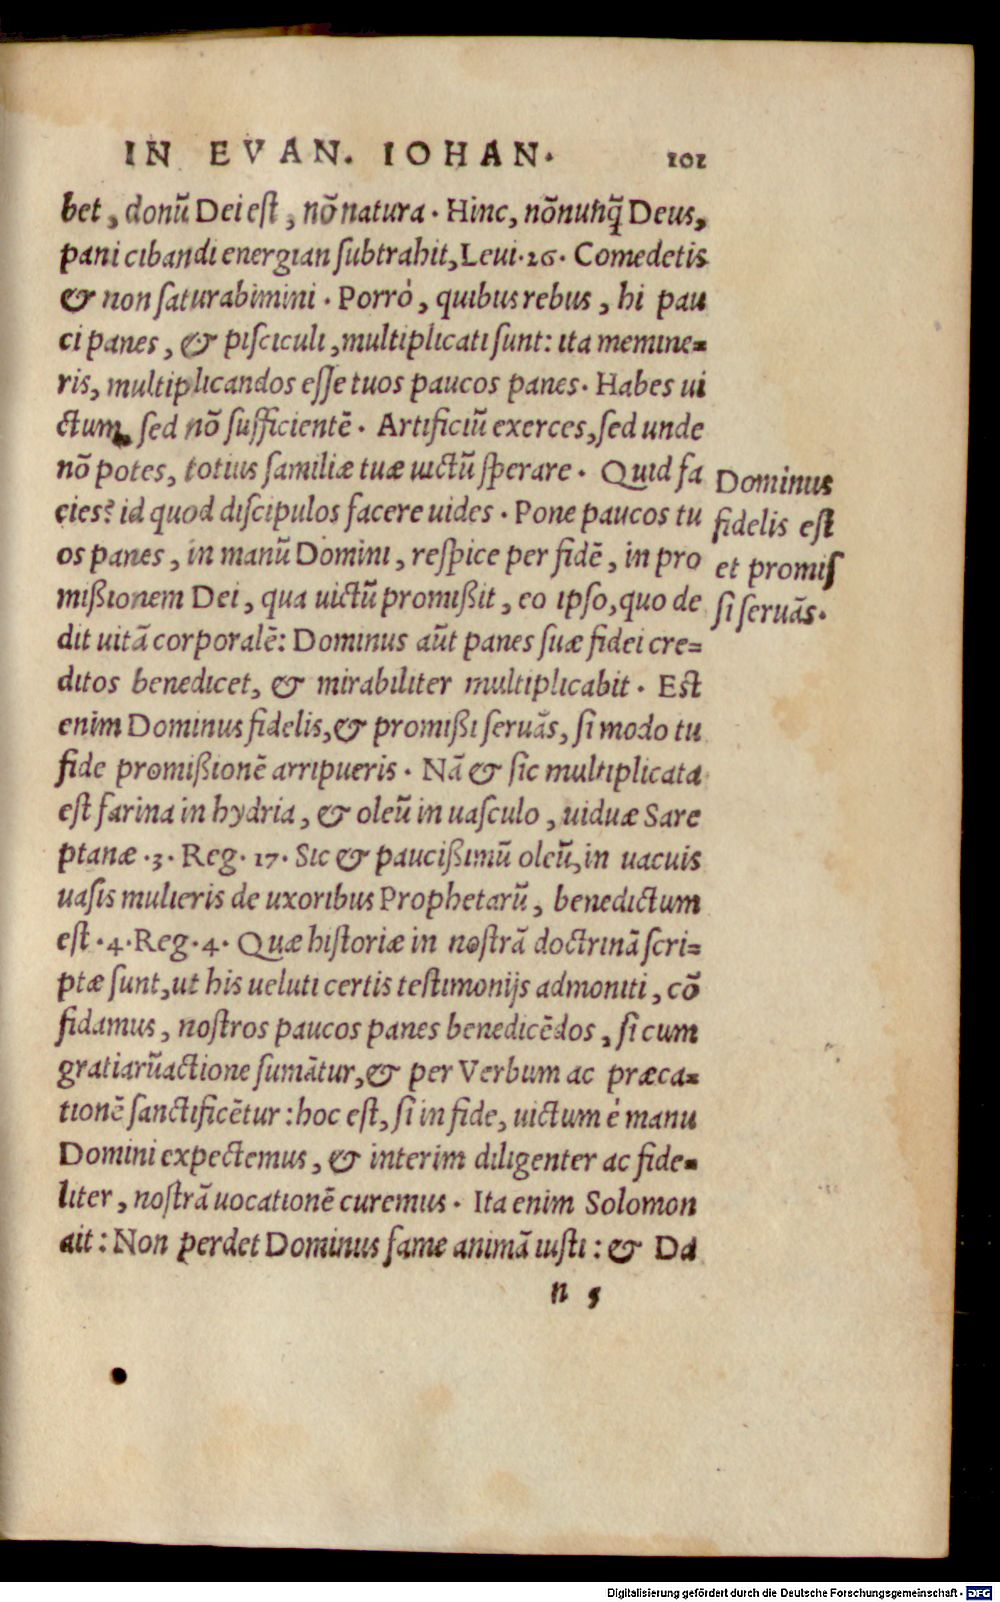 IN EVAN. IOHAN. 101
bet, donũ Dei est, nõ natura. Hinc, nõnunq̃ Deus,
pani cibandi energian subtrahit, Leui. 26. Comedetis
& non saturabimini. Porrò, quibus rebus, hi pau
ci panes, & pisciculi, multiplicati sunt: ita memine=
ris, multiplicandos esse tuos paucos panes. Habes ui
ctum, sed nõ sufficientẽ. Artificiũ exerces, sed unde
nõ potes, totius familiæ tuæ uictũ sperare. Quid fa
cies? id quod discipulos facere uides. Pone paucos tu
os panes, in manũ Domini, respice per fidẽ, in pro
mißionem Dei, qua uictũ promißit, eo ipso, quo de
dit uitã corporalẽ: Dominus aũt panes suæ fidei cre=
ditos benedicet, & mirabiliter multiplicabit. Est
enim Dominus fidelis, & promißi seruãs, si modo tu
fide promißionẽ arripueris. Nã & sic multiplicata
est farina in hydria, & oleũ in uasculo, uiduæ Sare
ptanæ .3. Reg. 17. Sic & paucißimũ oleũ, in uacuis
uasis mulieris de uxoribus Prophetarũ, benedictum
est .4. Reg. 4. Quæ historiæ in nostrã doctrinã scri=
ptæ sunt, ut his ueluti certis testimonijs admoniti, cõ
fidamus, nostros paucos panes benedicẽdos, si cum
gratiarũactione sumãtur, & per Verbum ac præca=
tionẽ sanctificẽtur: hoc est, si in fide, uictum è manu
Domini expectemus, & interim diligenter ac fide=
liter, nostrã uocationẽ curemus. Ita enim Solomon
ait: Non perdet Dominus fame animã iusti: & Da
n 5
Dominus
fidelis est
et promis
si seruãs.
Digitalisierung gefördert durch die Deutsche Forschungsgemeinschaft - DFG